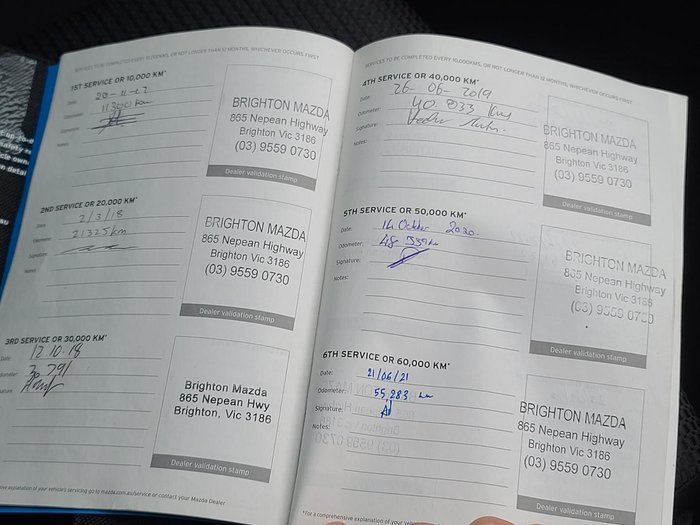 SERVICES TO BE COMPLETED EVERY 10,000KMS, OR NOT LONGER THAN 12 MONTHS, WHICHEVER OCCURS FIRST
1ST SERVICE OR 10,000 KM*
Date:
Odometer: 11300 km
Signature:
Notes:
BRIGHTON MAZDA
865 Nepean Highway
Brighton Vic 3186
(03) 9559 0730
Dealer validation stamp
2ND SERVICE OR 20,000 KM*
Date: 2/3/18
Odometer: 21325km
Signature:
Notes:
BRIGHTON MAZDA
865 Nepean Highway
Brighton Vic 3186
(03) 9559 0730
Dealer validation stamp
3RD SERVICE OR 30,000 KM*
Date: 12 10.18
30 791
Notes:
Brighton Mazda
865 Nepean Hwy
Brighton, Vic 3186
Dealer validation stamp
explanation of your vehicle's servicing go to mazda.com.au/service or contact your Mazda Dealer
SERVICES TO BE COMPLETED EVERY 10,000KMS, OR NOT LONGER THAN 12 MONTHS, WHICHEVER OCCURS FIRST
4TH SERVICE OR 40,000 KM*
Date: 26-06-2019
Odometer: 40.033 Kms
Signature:
Notes:
BRIGHTON MAZDA
865 Nepean Highway
Brighton Vic 3186
(03) 9559 0730
Dealer validation stamp
5TH SERVICE OR 50,000 KM*
Date: 14 October 2020.
Odometer: 48 539km
Signature:
Notes:
BRIGHTON MAZDA
865 Nepean Highway
Brighton Vic 3186
(03) 9559 0730
Dealer validation stamp
6TH SERVICE OR 60,000 KM*
Date: 21/06/21
Odometer: 55,283 km
Signature:
Notes:
BRIGHTON MAZDA
865 Nepean Highway
Brighton Vic 3186
(03) 9559 0730
Dealer validation stamp
*For a comprehensive explanation of your